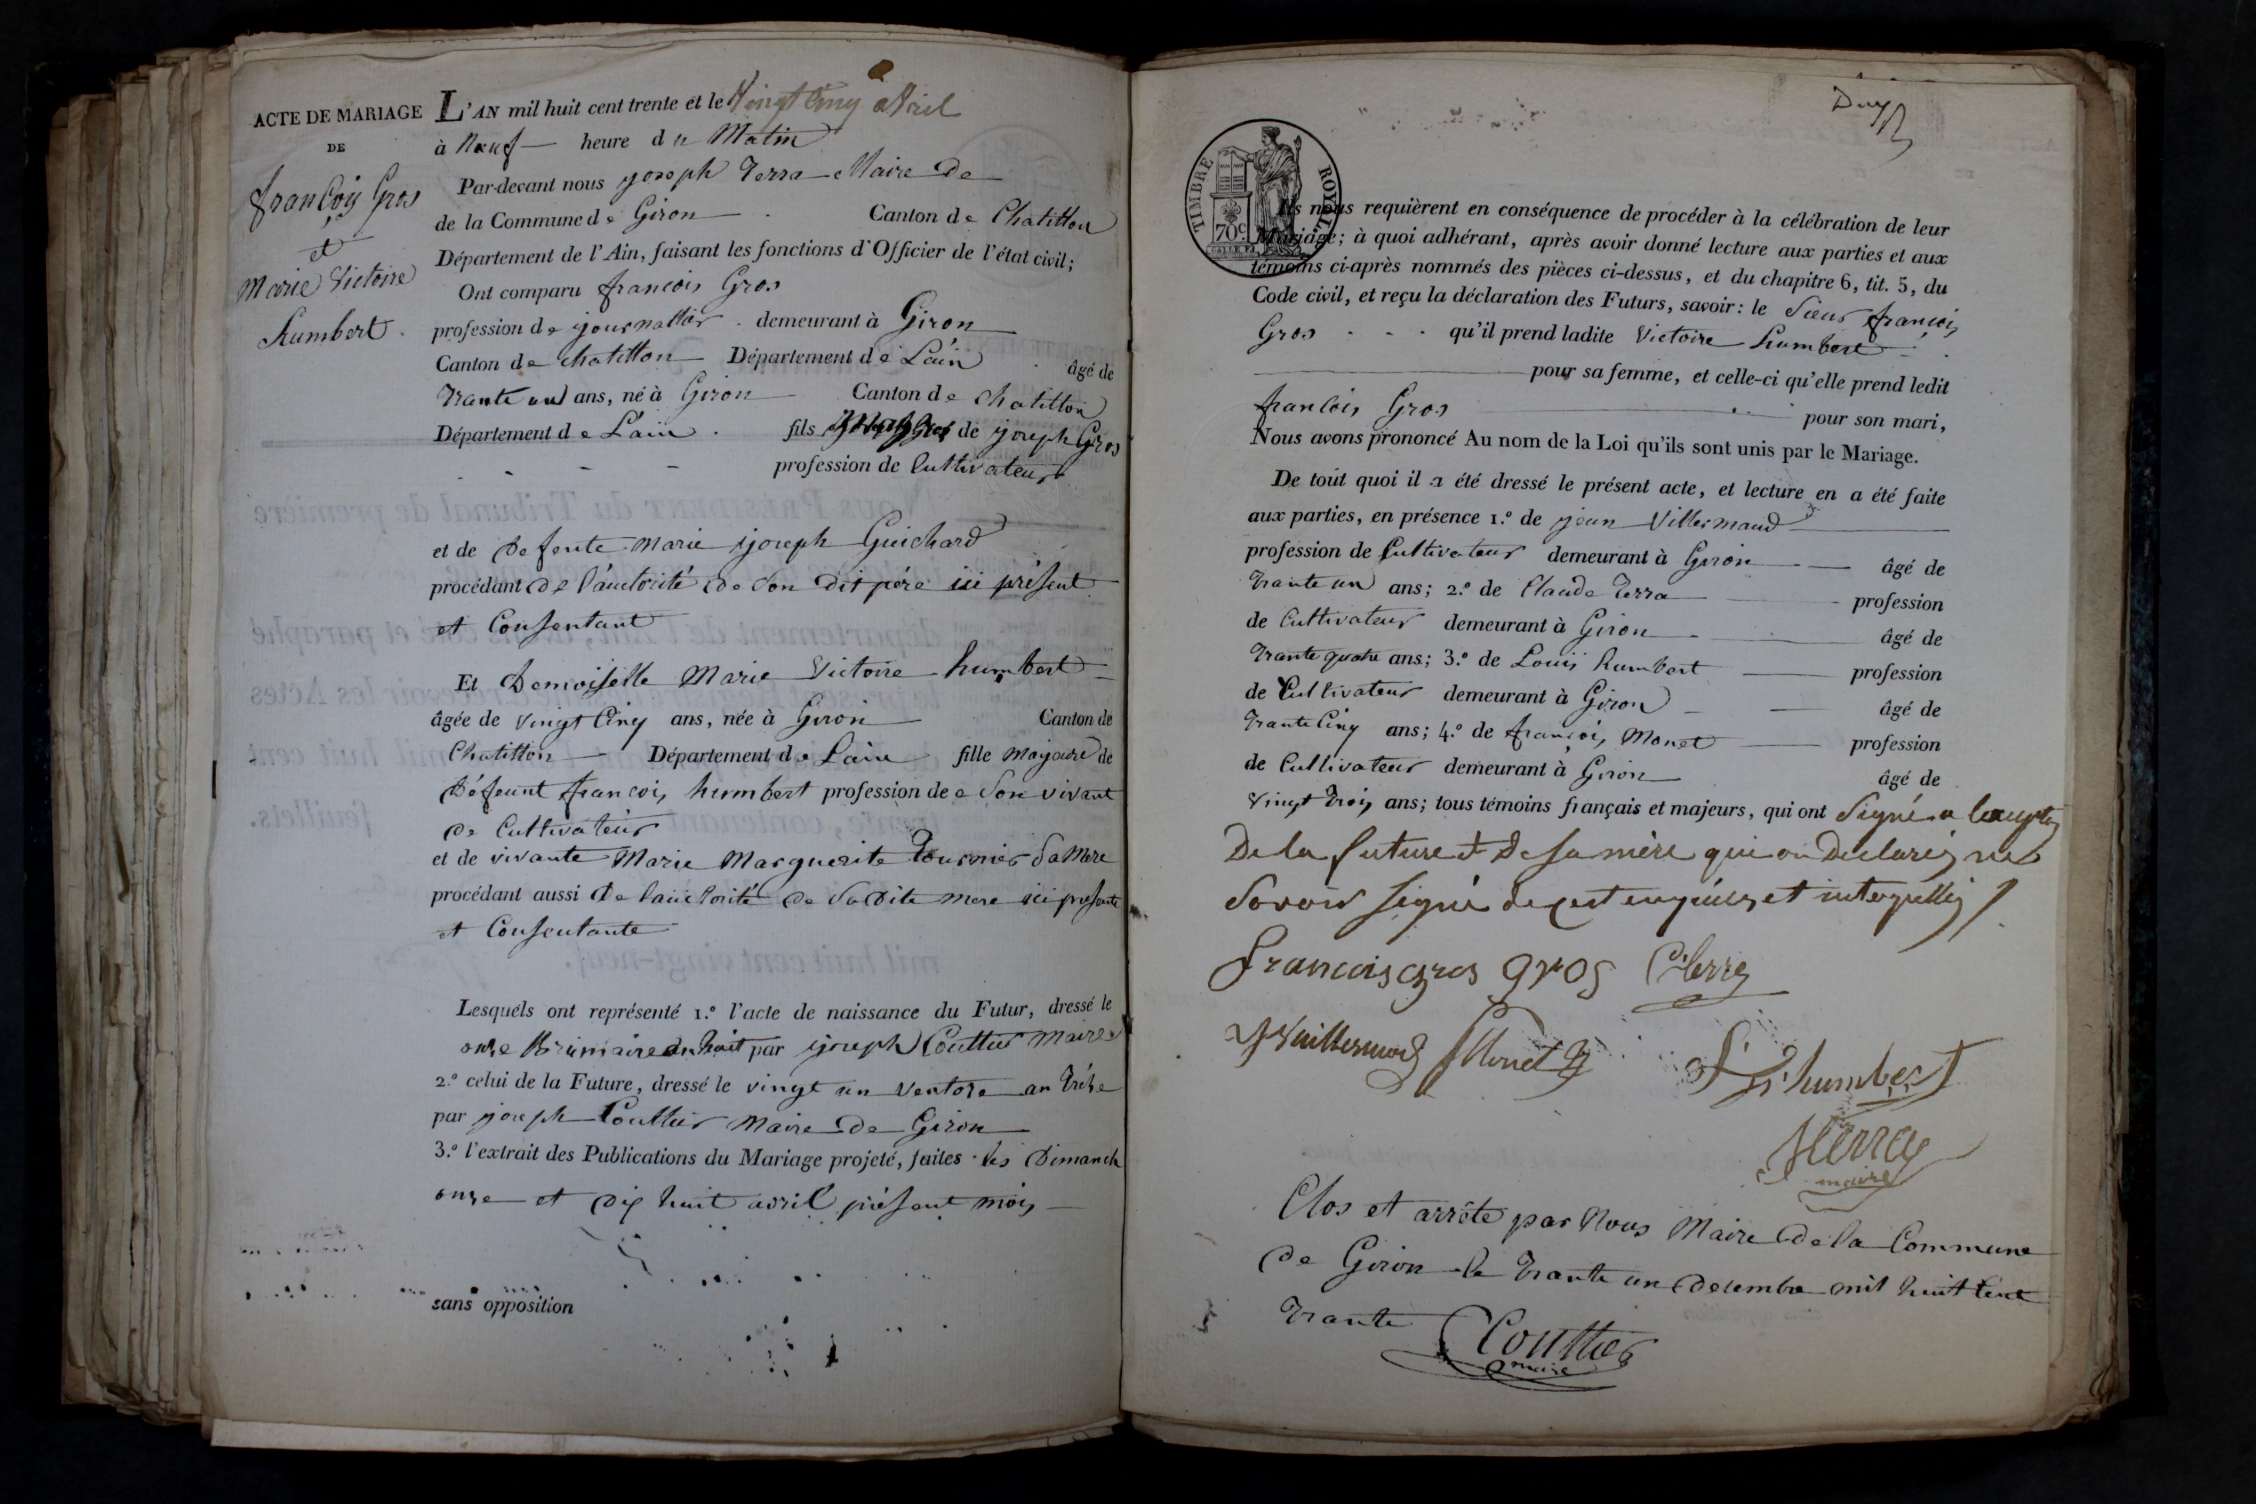 ACTE DE MARIAGE
DE
françois Gros
et
Marie Victoire
humbert
L'AN mil huit cent trente et le Vingt Cinq avril
à Neuf heure du Matin
Par-devant nous joseph Terra Maire de
de la Commune de Giron Canton de Chatillon
Département de l'Ain, faisant les fonctions d'Officier de l'état civil;
Ont comparu francois Gros
profession de journallier demeurant à Giron
Canton de chatillon Département de Lain âgé de
trante un ans, né à Giron Canton de chatillon
Département de Lain fils de joseph Gros
profession de Cultivateur
et de defente marie joseph Guichard
procédant de l'auctorité de son dit père ici présent
et Consentant
Et Demoiselle Marie Victoire humbert
âgée de vingt Cinq ans, née à Giron Canton de
Chatillon Département de Lain fille majoure de
Défeunt francois humbert profession de Son vivant
de Cultivateur
et de vivante Marie Marguerite tournier Sa Mere
procédant aussi de lauctorité de Sa Dite mere ici presente
et Consentante
Lesquels ont représenté 1.º l'acte de naissance du Futur, dressé le
onze Brumaire an huit par joseph Couttier Maire
2.º celui de la Future, dressé le vingt un ventose an trèze
par joseph Couttier Maire de Giron
3.º l'extrait des Publications du Mariage projeté, faites les Dimanch
onze et dix huit avril présent mois
sans opposition
TIMBRE ROYAL
70 c
Ils nous requièrent en conséquence de procéder à la célébration de leur
Mariage; à quoi adhérant, après avoir donné lecture aux parties et aux
témoins ci-après nommés des pièces ci-dessus, et du chapitre 6, tit. 5, du
Code civil, et reçu la déclaration des Futurs, savoir: le Sieur françois
Gros qu'il prend ladite Victoire humbert
pour sa femme, et celle-ci qu'elle prend ledit
francois Gros pour son mari,
Nous avons prononcé Au nom de la Loi qu'ils sont unis par le Mariage.
De tout quoi il a été dressé le présent acte, et lecture en a été faite
aux parties, en présence 1.º de jean Villermaud
profession de Cultivateur demeurant à Giron âgé de
trante un ans; 2.º de Claude Terra profession
de Cultivateur demeurant à Giron âgé de
trante quatre ans; 3.º de Louis humbert profession
de Cultivateur demeurant à Giron âgé de
trante Cinq ans; 4.º de françois Monet profession
de Cultivateur demeurant à Giron âgé de
vingt trois ans; tous témoins français et majeurs, qui ont Signé a
De la future et de sa mère qui on Declaréz ne
Savoir Signé de ce et
francois gros gros C. terra
Vuillermoz Monet L. humbert
J. terra
maire
Clos et arrête par Nous Maire de la Commune
de Giron le trante un decembre mil huit Cent
trante Couttier
maire